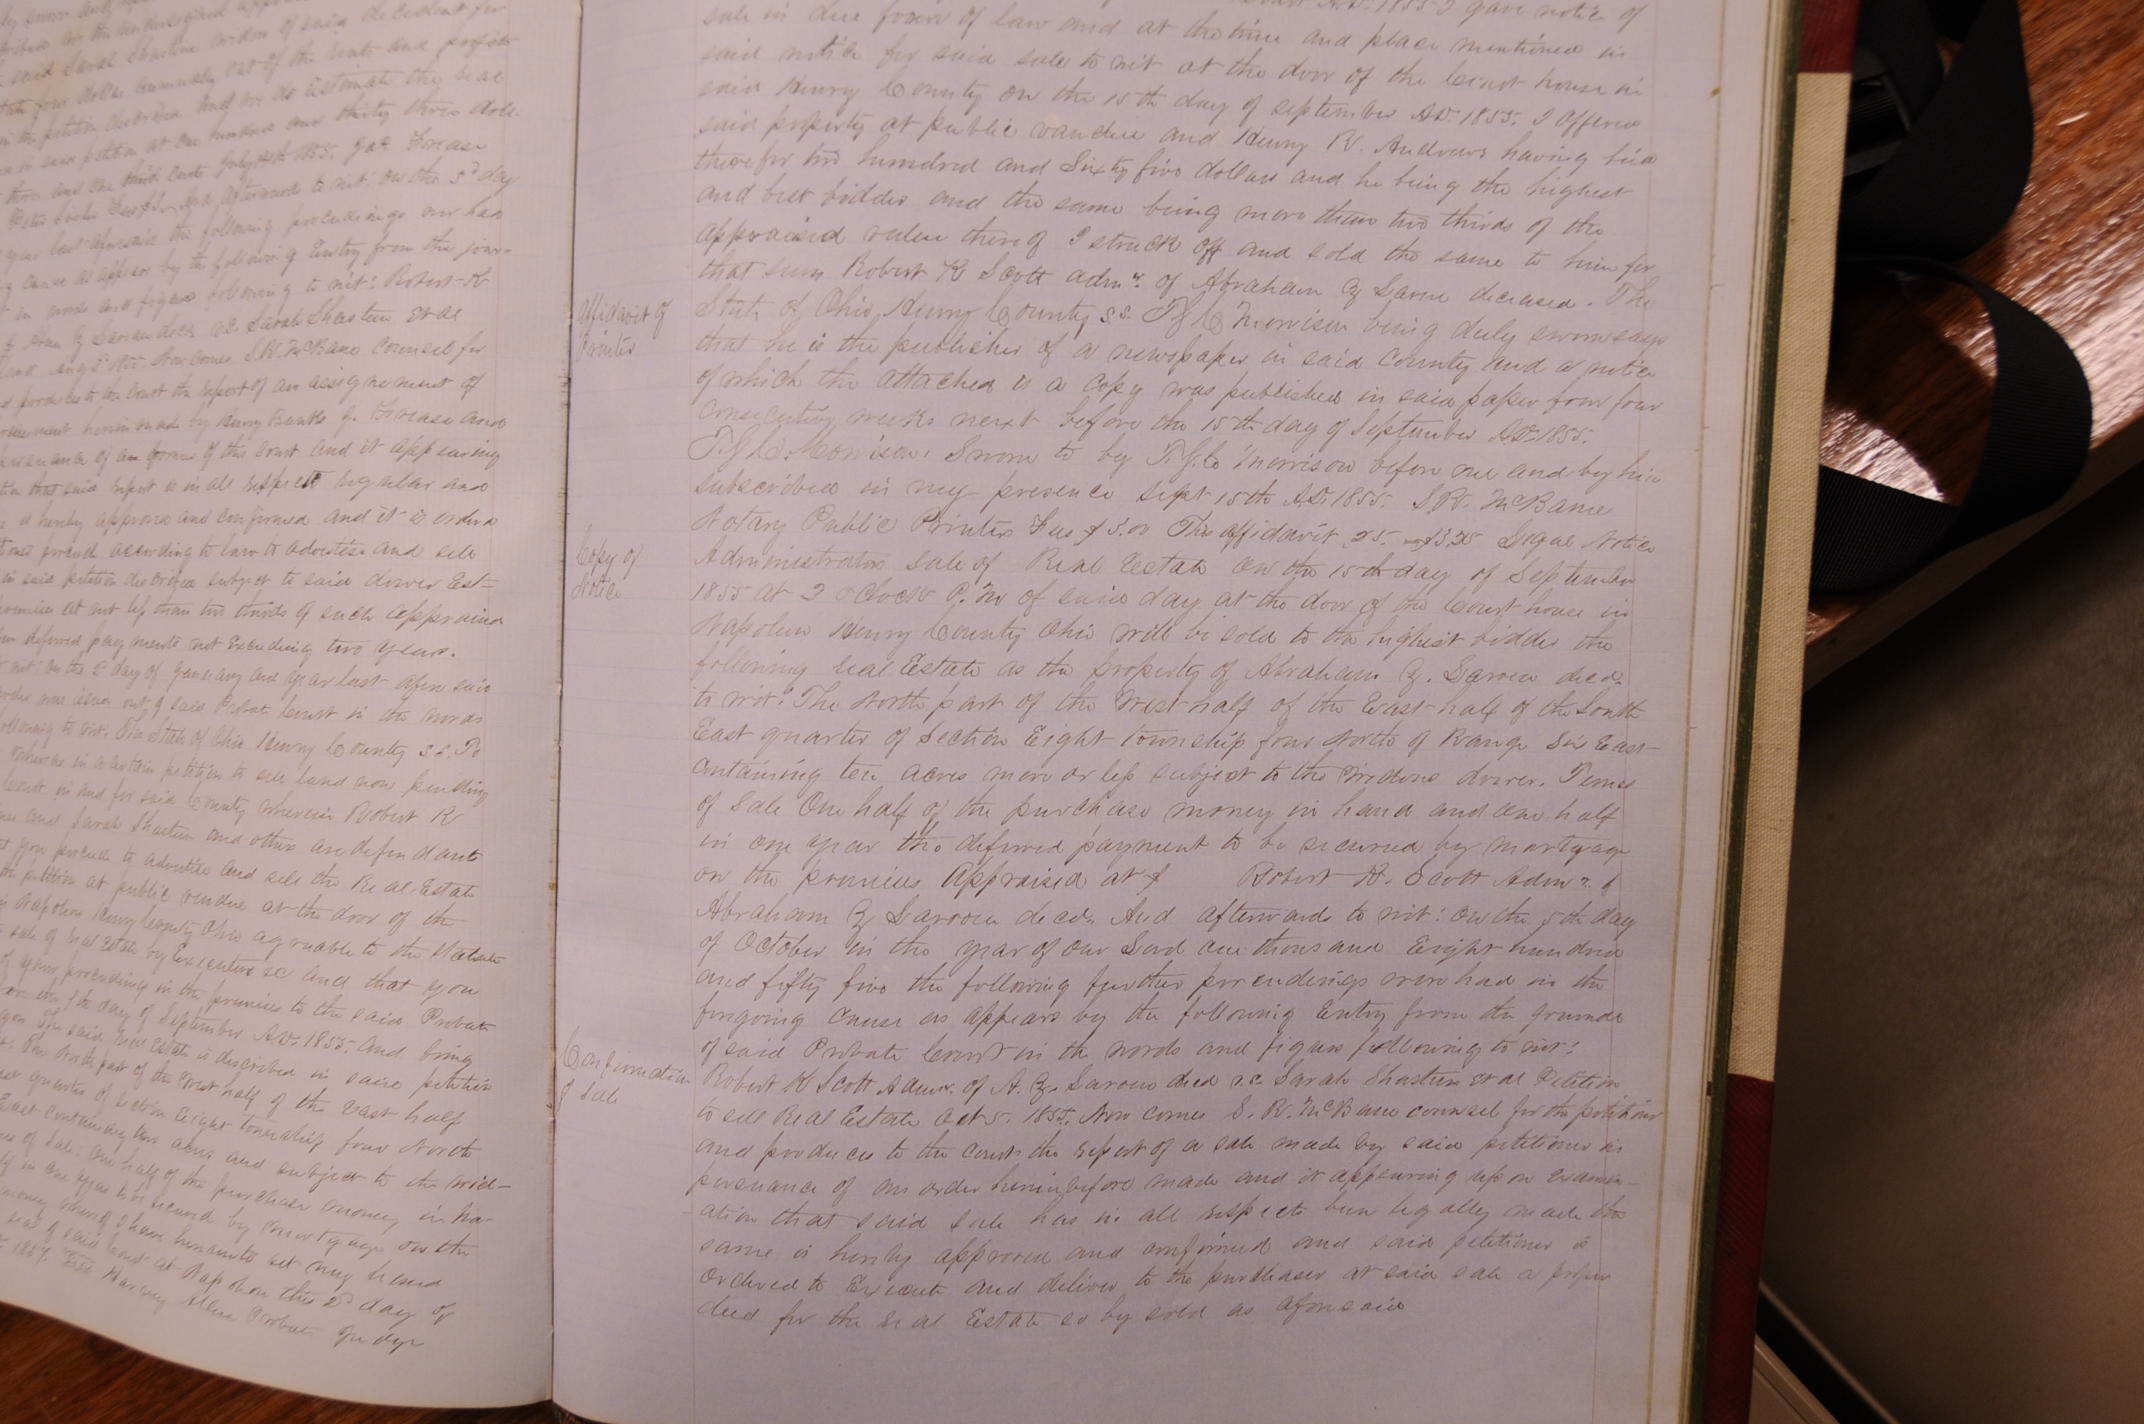 said Sarah Shasteen widow of said decedent for
four dollars annually out of the rents and profits
in the petition described And we do Estimate the real
in said petition at One hundred and thirty three doll-
three and one third cents July 1855. Jas. Crease
afterwards to wit: on the 3d day
year last aforesaid the following proceedings were had
cause as appears by the following Entry from the jour-
in words and figures following to wit: Robert K
vs. Sarah Shasteen et al
Aug 3d 1855. Now comes S.R. McBane Counsel for
produces to the Court the report of an assignment of
herein made by Henry Banks J. Crease and
pursuance of an order of this Court and it appearing
that said report is in all respects regular and
hereby approved and confirmed and it is ordered
proceed according to law to advertise and sell
in said petition described subject to said dower Est-
premises at not less than two thirds of such appraised
deferred payments not Exceeding two years.
wit: on the 2d day of January and year last afore said
order was issued out of said Probate Court in the words
following to wit: The State of Ohio Henry County s.s. To
Whereas in a certain petition to sell land now pending
Court in and for said County wherein Robert K
and Sarah Shasteen and others are defendants
you proceed to advertise and sell the Real Estate
petition at public vendue at the door of the
Napoleon Henry County Ohio agreeable to the Statute
sale of real Estate by Executors &c And that you
of your proceedings in the premises to the said Probate
day of September A.D. 1855. And bring
said real Estate is described in said petition
The North part of the West half of the East half
quarter of Section Eight township four North
East containing ten acres and subject to the wid-
of Sale. One half of the purchase money in ha-
in one year to be secured by mortgage on the
whereof I have hereunto set my hand
seal of said Court at Napoleon this 2d day of
Harvey Allen Probate Judge
A.D. 1855 I gave notice of
sale in due form of law and at the time and place mentioned in
said notice for said sale to wit at the door of the Court house in
said Henry County on the 15th day of September A.D. 1855. I offered
said property at public vendue and Henry R. Andrews having bid
therefor two hundred and Sixty five dollars and he being the highest
and best bidder and the same being more than two thirds of the
appraised value thereof I struck off and sold the same to him for
that sum Robert K Scott admr. of Abraham Z Sarow deceased. The
Affidavit of
Printer
State of Ohio, Henry County s.s. T.J.C. Morrison being duly sworn says
that he is the publisher of a newspaper in said County and a notice
of which the attached is a Copy was published in said paper four four
Consecutive weeks next before the 15th day of September A.D. 1855.
T.J.C. Morrison. Sworn to by T.J.C. Morrison before me and by him
subscribed in my presence Sept 15th A.D. 1855. S.R. McBane
Notary Public Printers Fees $3.00 This affidavit .25. $3.25 Legal Notice
Copy of
Notice
Administrators Sale of Real Estate On the 15th day of September
1855 at 2 oclock P.M of said day at the door of the Court house in
Napoleon Henry County Ohio will be sold to the highest bidder the
following real Estate as the property of Abraham Z. Sarow decd.
to wit: The North part of the West half of the East half of the South
East quarter of Section Eight township four North of Range Six East-
Containing ten acres more or less subject to the Widows dower. Terms
of Sale One half of the purchase money in hand and one half
in one year the deferred payment to be secured by mortgage
on the premises Appraised at $ Robert K. Scott Admr. of
Abraham Z Sarow decd. And afterwards to wit: On the 5th day
of October in the year of our Lord one thousand Eight hundred
and fifty five the following further proceedings were had in the
foregoing Cause as appears by the following Entry from the journal
of said Probate Court in the words and figures following to wit:
Confirmation
of Sale
Robert K Scott Admr. of A. Z. Sarow decd vs. Sarah Shasteen et al Petition
to sell Real Estate Oct 5. 1855. Now comes S. R. McBane counsel for the petitioner
and produces to the court the report of a sale made by said petitioner in
persuance of an order hereinbefore made and it appearing upon Examin-
ation that said sale has in all respects been legally made the
same is hereby approved and confirmed and said petitioner is
ordered to Execute and deliver to the purchaser at said sale a proper
deed for the real Estate so by sold as aforesaid